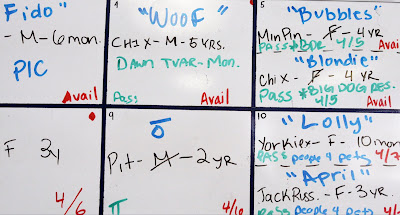 Fido"
- M - 6 mon.
PIC
Avail
4
"WOOF"
CHIX - M - 5 YRS.
DAWN TVAR - Mon.
Pass
Avail
5
"Bubbles"
MinPin - F - 4 YR
PASS * BDR 4/5
"Blondie"
Chix - F - 4 YR
Pass * BIG DOG RES.
4/5
Avail
F 3y
4/6
9
Pit - M - 2 yr
4/10
10
"Lolly"
Yorkiex - F - 10 mon
PASS people & pets 4/7
"April"
JackRuss. - F - 3 yr.
pass people & pets